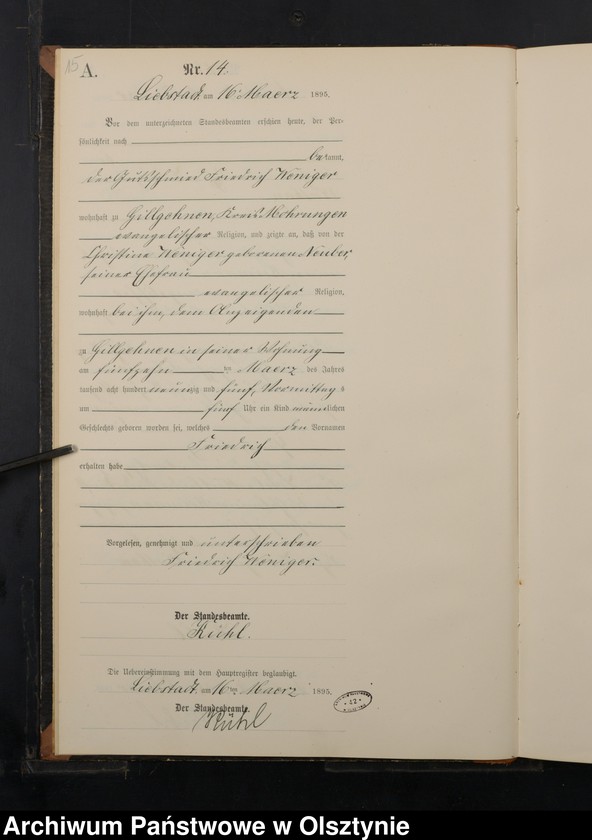 15
A.
Nr. 14.
Liebstadt am 16 Maerz 1895.
Vor dem unterzeichneten Standesbeamten erschien heute, der Per-
sönlichkeit nach
bekannt,
der Gutsschmied Friedrich Königer
wohnhaft zu Gillgehnen, Kreis Mohrungen
evangelischer Religion, und zeigte an, daß von der
Christine Königer geborenen Neuber,
seiner Ehefrau
evangelischer Religion,
wohnhaft bei ihm, dem Anzeigenden
zu Gillgehnen in seiner Wohnung
am fünfzehn ten Maerz des Jahres
tausend acht hundert neunzig und fünf, Vormittags
um fünf Uhr ein Kind männlichen
Geschlechts geboren worden sei, welches den Vornamen
Friedrich
erhalten habe
Vorgelesen, genehmigt und unterschrieben
Friedrich Königer.
Der Standesbeamte.
Kühl.
Die Uebereinstimmung mit dem Hauptregister beglaubigt.
Liebstadt, am 16ten Maerz 1895.
Der Standesbeamte.
Kühl
42
Archiwum Państwowe w Olsztynie